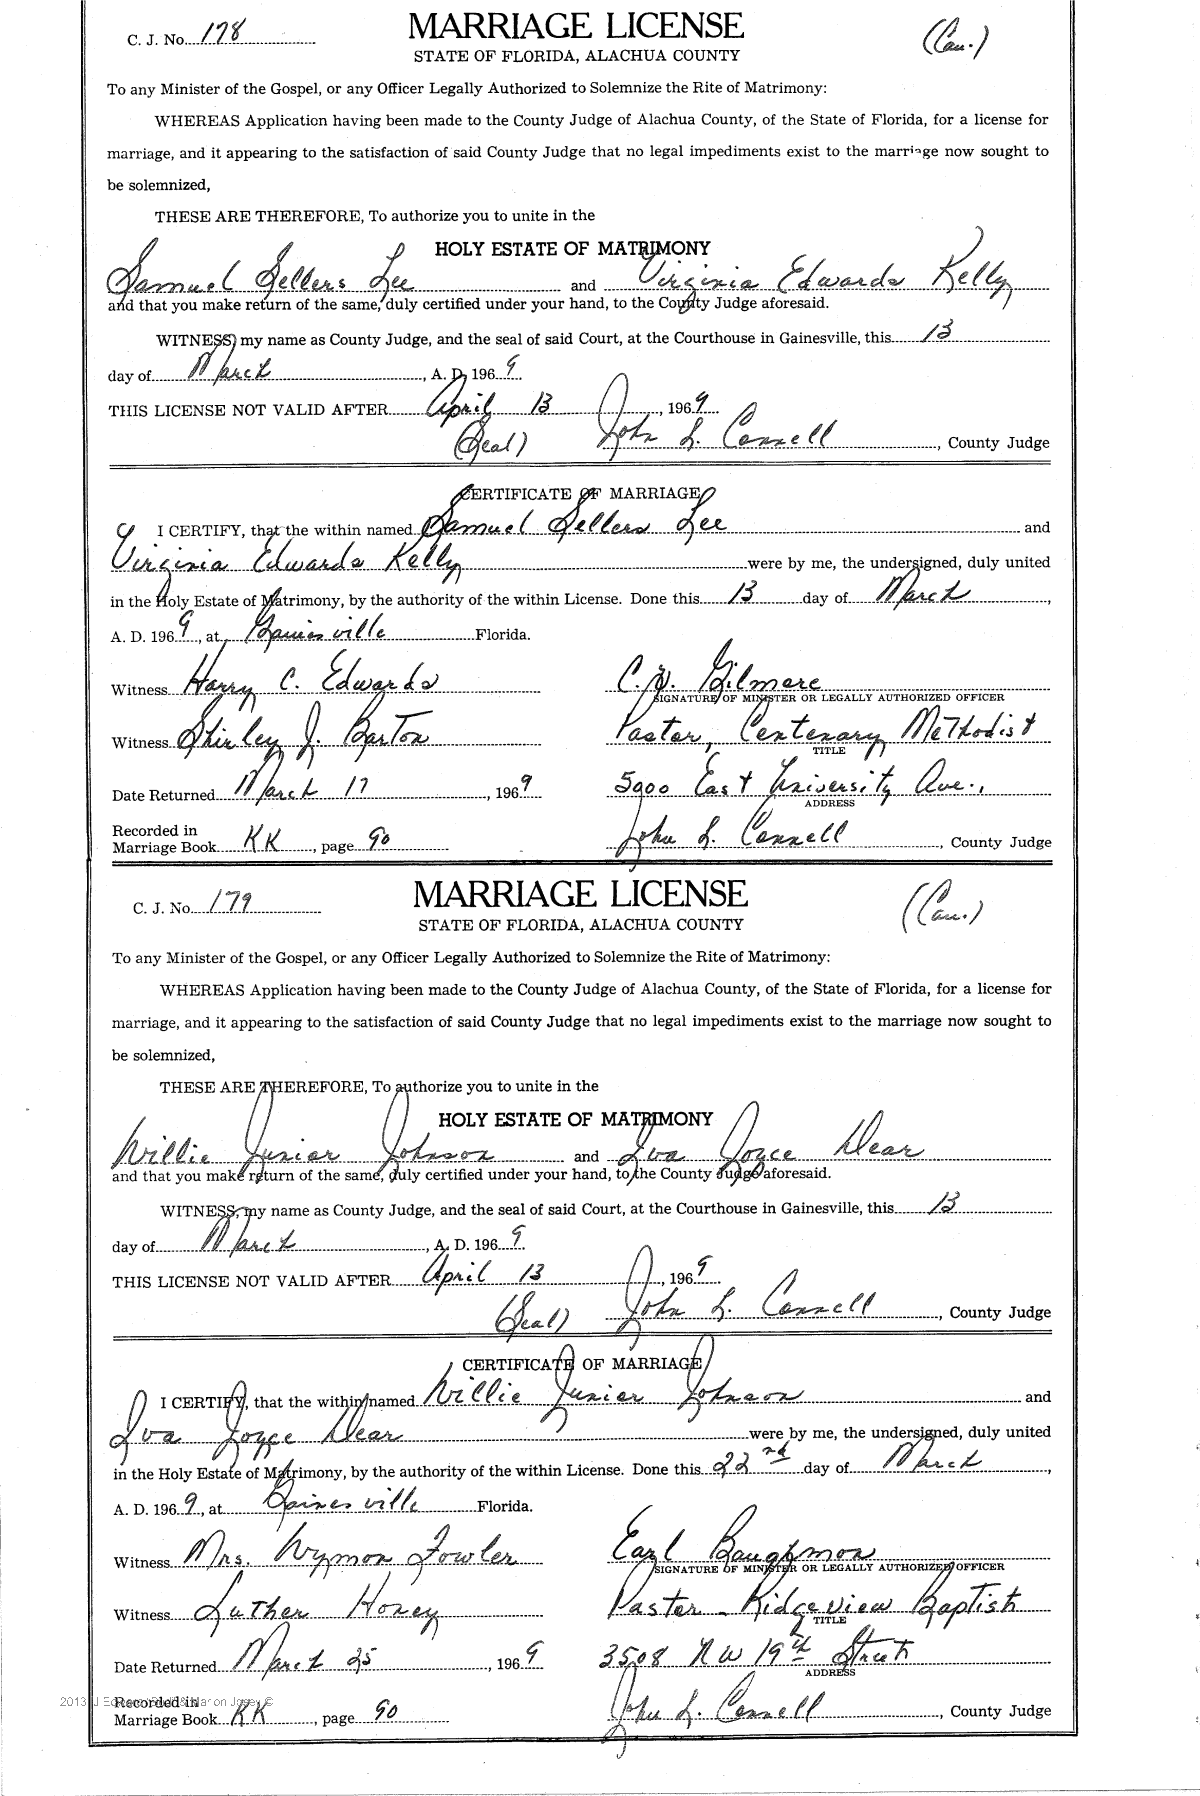 C. J. No. 178
MARRIAGE LICENSE
(Cau.)
STATE OF FLORIDA, ALACHUA COUNTY
To any Minister of the Gospel, or any Officer Legally Authorized to Solemnize the Rite of Matrimony:
WHEREAS Application having been made to the County Judge of Alachua County, of the State of Florida, for a license for
marriage, and it appearing to the satisfaction of said County Judge that no legal impediments exist to the marriage now sought to
be solemnized,
THESE ARE THEREFORE, To authorize you to unite in the
HOLY ESTATE OF MATRIMONY
Samuel Sellers Lee and Virginia Edwards Kelly
and that you make return of the same, duly certified under your hand, to the County Judge aforesaid.
WITNESS, my name as County Judge, and the seal of said Court, at the Courthouse in Gainesville, this 13
day of March, A. D. 1969
THIS LICENSE NOT VALID AFTER April 13, 1969
(Seal) John L. Connell, County Judge
CERTIFICATE OF MARRIAGE
I CERTIFY, that the within named Samuel Sellers Lee and
Virginia Edwards Kelly were by me, the undersigned, duly united
in the Holy Estate of Matrimony, by the authority of the within License. Done this 13 day of March,
A. D. 1969, at Gainesville Florida.
Witness Harry C. Edwards C. W. Gilmore
SIGNATURE OF MINISTER OR LEGALLY AUTHORIZED OFFICER
Witness Shirley J. Barton Pastor, Centenary Methodist
TITLE
Date Returned March 17, 1969 5900 East University Ave.,
ADDRESS
Recorded in
Marriage Book KK, page 90 John L. Connell, County Judge
C. J. No. 179
MARRIAGE LICENSE
(Cau.)
STATE OF FLORIDA, ALACHUA COUNTY
To any Minister of the Gospel, or any Officer Legally Authorized to Solemnize the Rite of Matrimony:
WHEREAS Application having been made to the County Judge of Alachua County, of the State of Florida, for a license for
marriage, and it appearing to the satisfaction of said County Judge that no legal impediments exist to the marriage now sought to
be solemnized,
THESE ARE THEREFORE, To authorize you to unite in the
HOLY ESTATE OF MATRIMONY
Willie Junior Johnson and Iva Joyce Dear
and that you make return of the same, duly certified under your hand, to the County Judge aforesaid.
WITNESS, my name as County Judge, and the seal of said Court, at the Courthouse in Gainesville, this 13
day of March, A. D. 1969
THIS LICENSE NOT VALID AFTER April 13, 1969
(Seal) John L. Connell, County Judge
CERTIFICATE OF MARRIAGE
I CERTIFY, that the within named Willie Junior Johnson and
Iva Joyce Dear were by me, the undersigned, duly united
in the Holy Estate of Matrimony, by the authority of the within License. Done this 22nd day of March,
A. D. 1969, at Gainesville Florida.
Witness Mrs. Wymon Fowler Earl Baughmon
SIGNATURE OF MINISTER OR LEGALLY AUTHORIZED OFFICER
Witness Luther Honey Pastor - Ridgeview Baptist
TITLE
Date Returned March 25, 1969 3508 NW 19th Street
ADDRESS
Recorded in
Marriage Book KK, page 90 John L. Connell, County Judge